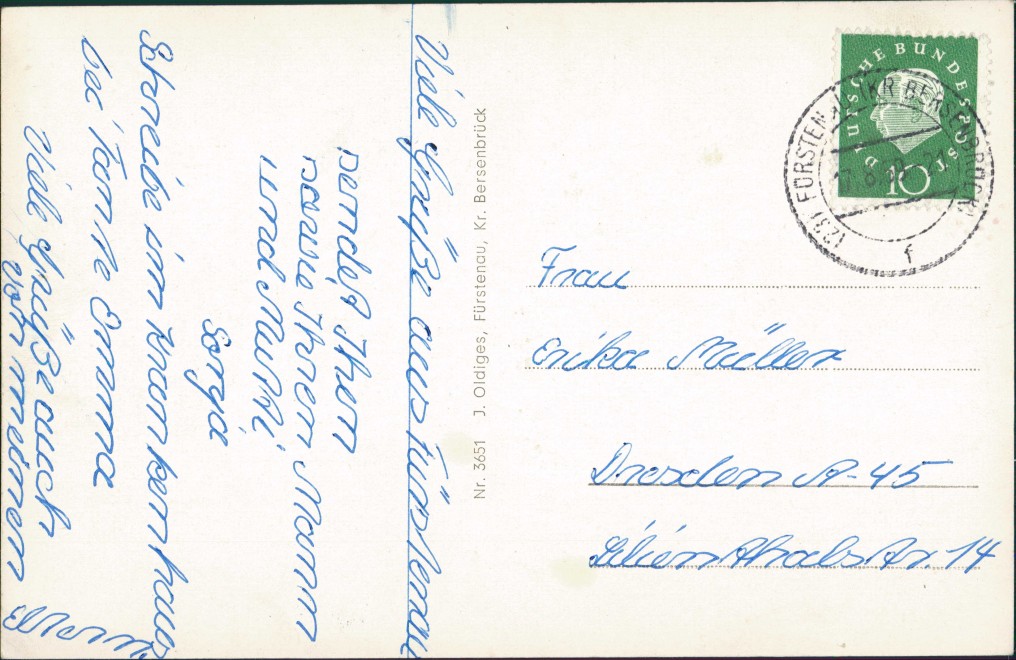 Viele Grüße aus Fürstenau
sendet Ihnen
sowie Ihrem Mann
und Mutti
Schreibe im Krankenhaus
bei Tante Emma
Viele Grüße auch
von meinem
Mann
Nr. 3651 J. Oldiges, Fürstenau, Kr. Bersenbrück
DEUTSCHE BUNDESPOST
10
(23) FÜRSTENAU (KR BERSENBRÜCK)
f
Frau
Erika Müller
Dresden A-45
Lilienthalstr. 14